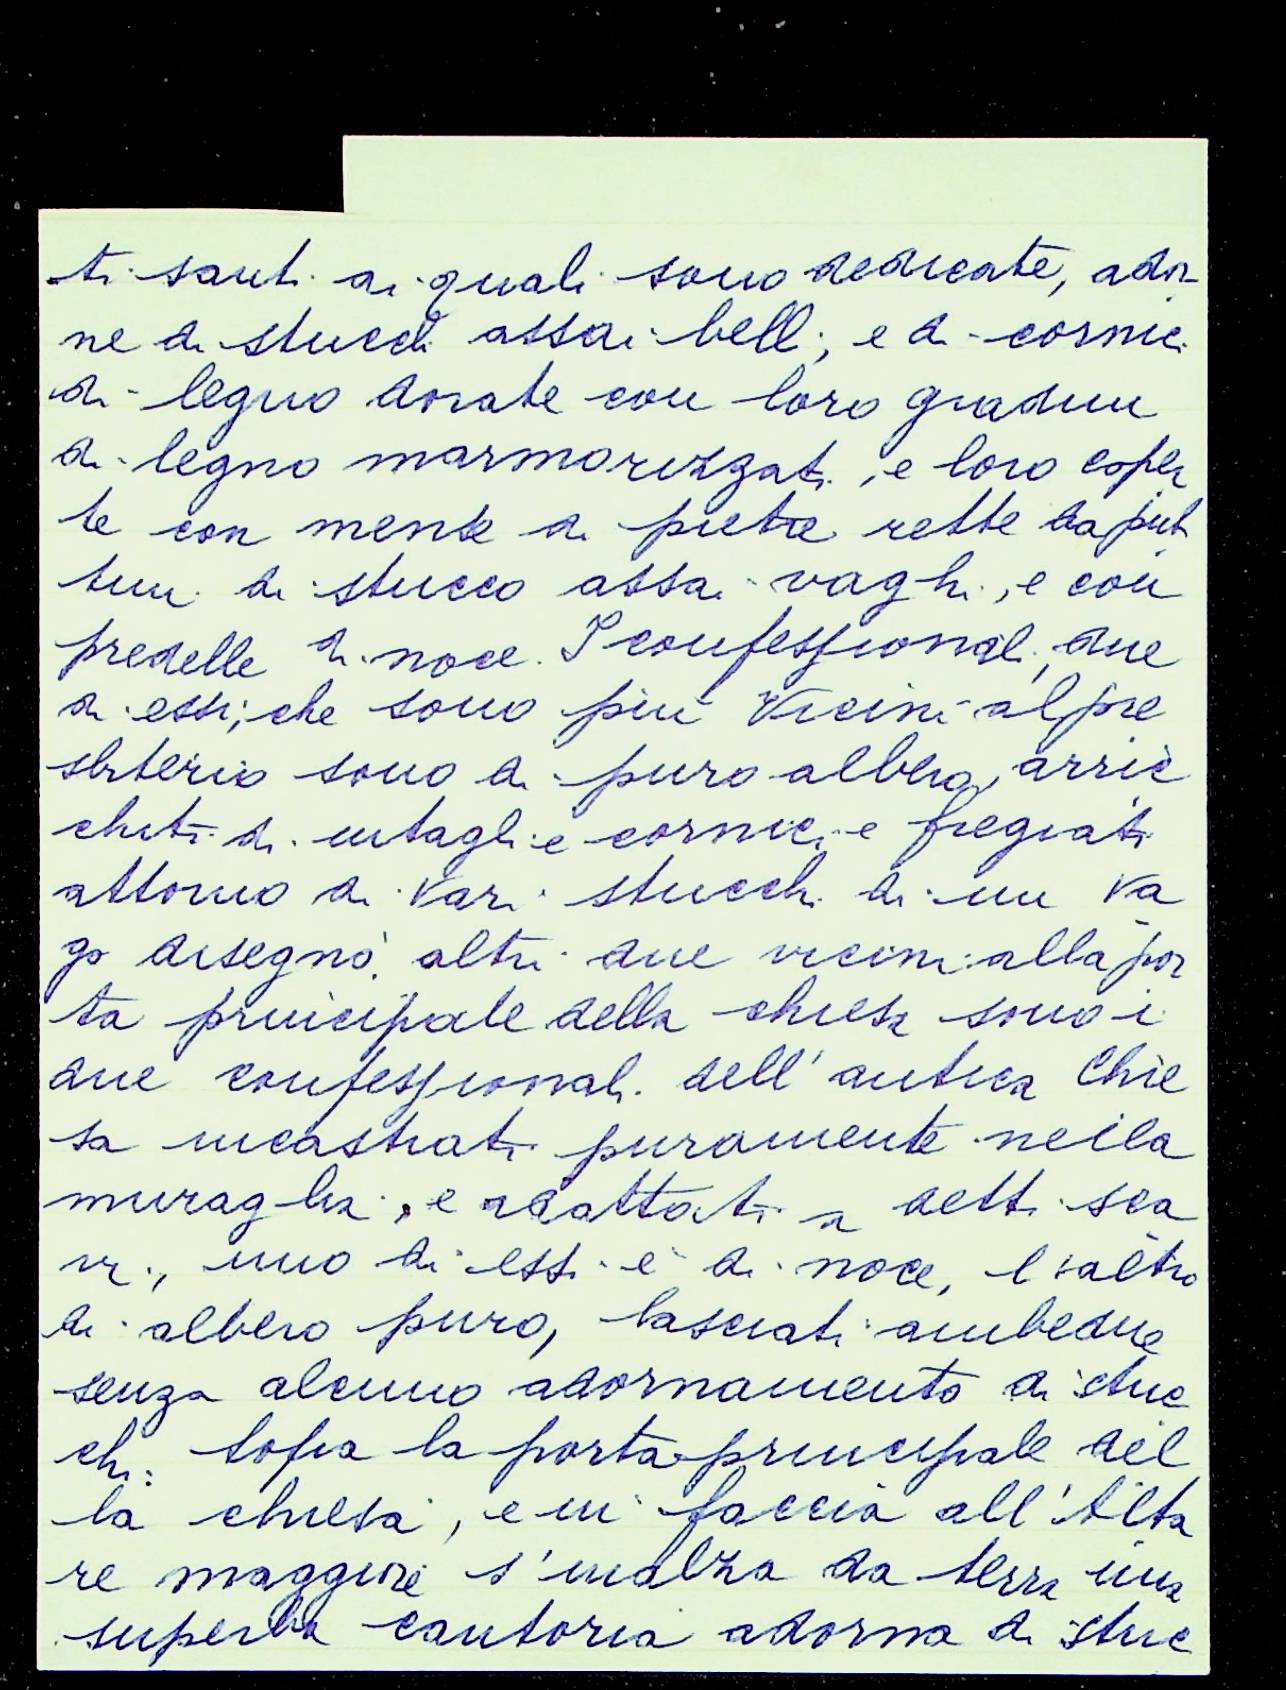 ti santi ai quali sono dedicate, ador-
ne di stucchi assai belli, e di cornici
di legno dorate con loro gradini
di legno marmorizzati, e loro coper
te con mense di pietra rette da put
tini di stucco assai vaghi, e con
predelle di noce. I confessionali, due
di essi, che sono più vicini al pre
sbiterio sono di puro albero, arric
chiti di intagli e cornici e fregiati
attorno di vari stucchi di un va
go disegno, altri due vicini alla por
ta principale della chiesa sono i
due confessionali dell'antica Chie
sa incastrati puramente nella
muraglia, e adattati a detti sca
vi, uno di essi è di noce, l'altro
di albero puro, lasciati ambedue
senza alcuno adornamento di stuc
chi: sopra la porta principale del
la chiesa, e in faccia all'Alta
re maggiore s'inalza da terra una
superba cantoria adorna di stuc